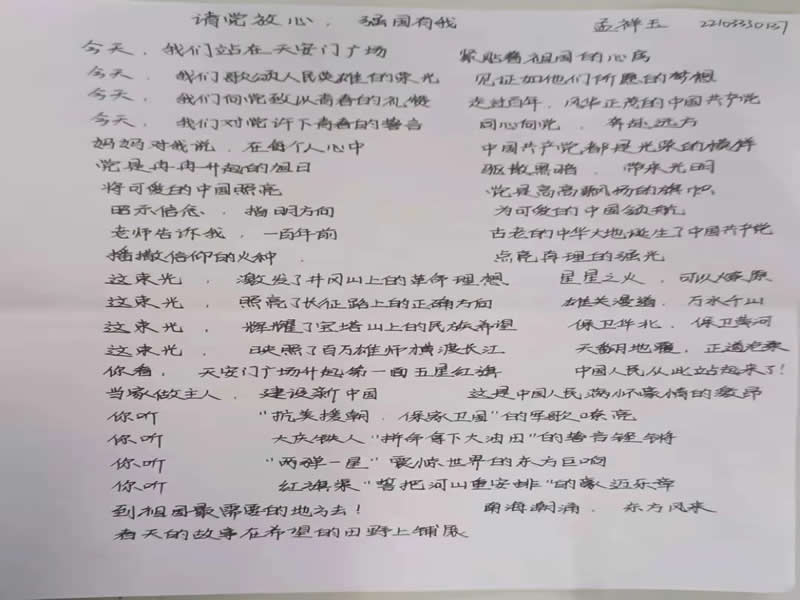 请党放心，强国有我 孟祥玉 22103350137
今天，我们站在天安门广场 紧贴着祖国的心房
今天，我们歌颂人民英雄的荣光 见证如他们所愿的梦想
今天，我们向党致以青春的礼赞 走过百年，风华正茂的中国共产党
今天，我们对党许下青春的誓言 同心向党，奔赴远方
妈妈对我说，在每个人心中 中国共产党都是光荣的模样
党是冉冉升起的旭日 驱散黑暗，带来光明
将可爱的中国照亮 党是高高飘扬的旗帜
昭示信念，指明方向 为可爱的中国领航
老师告诉我，一百年前 古老的中华大地诞生了中国共产党
播撒信仰的火种， 点亮真理的强光
这束光，激发了井冈山上的革命理想 星星之火，可以燎原
这束光，照亮了长征路上的正确方向 雄关漫道，万水千山
这束光，辉耀了宝塔山上的民族希望 保卫华北，保卫黄河
这束光，映照了百万雄师横渡长江 天翻地覆，正道沧桑
你看，天安门广场升起第一面五星红旗 中国人民从此站起来了！
当家做主人，建设新中国 这是中国人民满怀豪情的激昂
你听 "抗美援朝，保家卫国"的军歌嘹亮
你听 大庆铁人"拼命拿下大油田"的誓言铿锵
你听 "两弹一星"震惊世界的东方巨响
你听 红旗渠"誓把河山重安排"的豪迈乐章
到祖国最需要的地方去！ 南海潮涌，东方风来
春天的故事在希望的田野上铺展